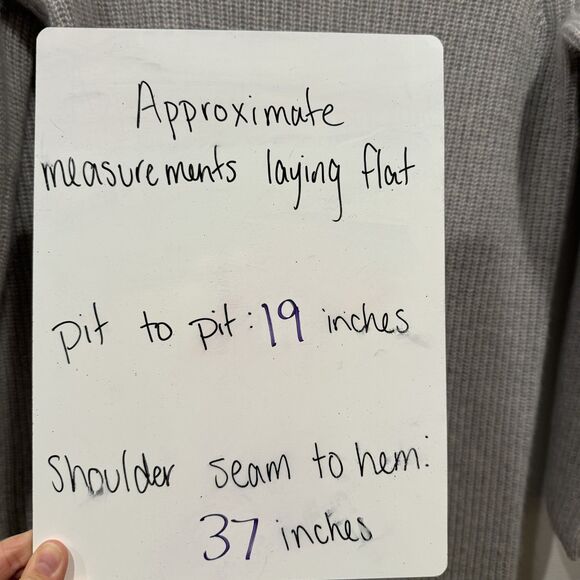 Approximate
measurements laying flat
pit to pit: 19 inches
Shoulder seam to hem:
37 inches